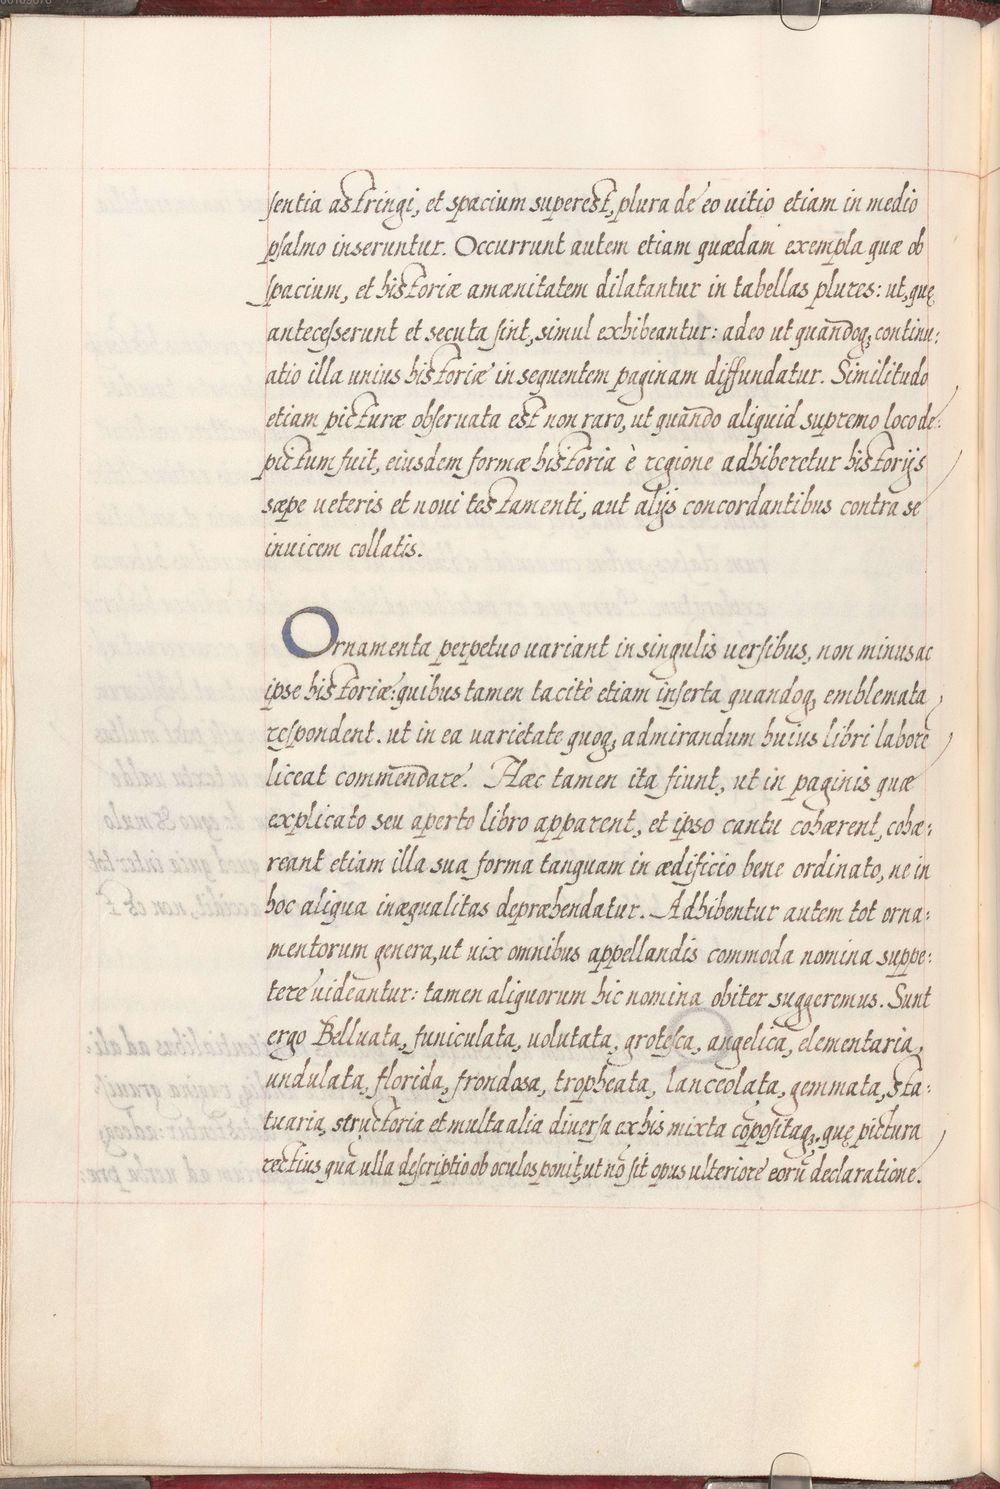 sentia astringi, et spacium superest, plura de eo uitio etiam in medio
psalmo inseruntur. Occurrunt autem etiam quædam exempla quæ ob
spacium, et historiæ amænitatem dilatantur in tabellas plures: ut, quę
antecesserunt et secuta sint, simul exhibeantur: adeo ut quandoq; continu:
atio illa unius historiæ in sequentem paginam diffundatur. Similitudo
etiam picturæ obseruata est non raro, ut quando aliquid supremo loco de:
pictum fuit, eiusdem formæ historia è regione adhiberetur historijs
sæpe ueteris et noui testamenti, aut alijs concordantibus contra se
inuicem collatis.
Ornamenta perpetuo uariant in singulis uersibus, non minus ac
ipse historiæ: quibus tamen tacitè etiam inserta quandoq; emblemata
respondent. ut in ea uarietate quoq; admirandum huius libri labore
liceat commendare. Hæc tamen ita fiunt, ut in paginis quæ
explicato seu aperto libro apparent, et ipso cantu cohærent, cohæ:
reant etiam illa sua forma tanquam in ædificio bene ordinato, ne in
hoc aliqua inæqualitas depræhendatur. Adhibentur autem tot orna:
mentorum genera, ut uix omnibus appellandis commoda nomina suppe:
tere uideantur: tamen aliquorum hic nomina obiter suggeremus. Sunt
ergo Belluata, funiculata, uolutata, grotesca, angelica, elementaria,
undulata, florida, frondosa, tropheata, lanceolata, gemmata, sta:
tuaria, structoria et multa alia diuersa ex his mixta cōpositaq;. quę pictura
rectius quā ulla descriptio ob oculos ponit, ut nō sit opus ulteriore eorū declaratione.